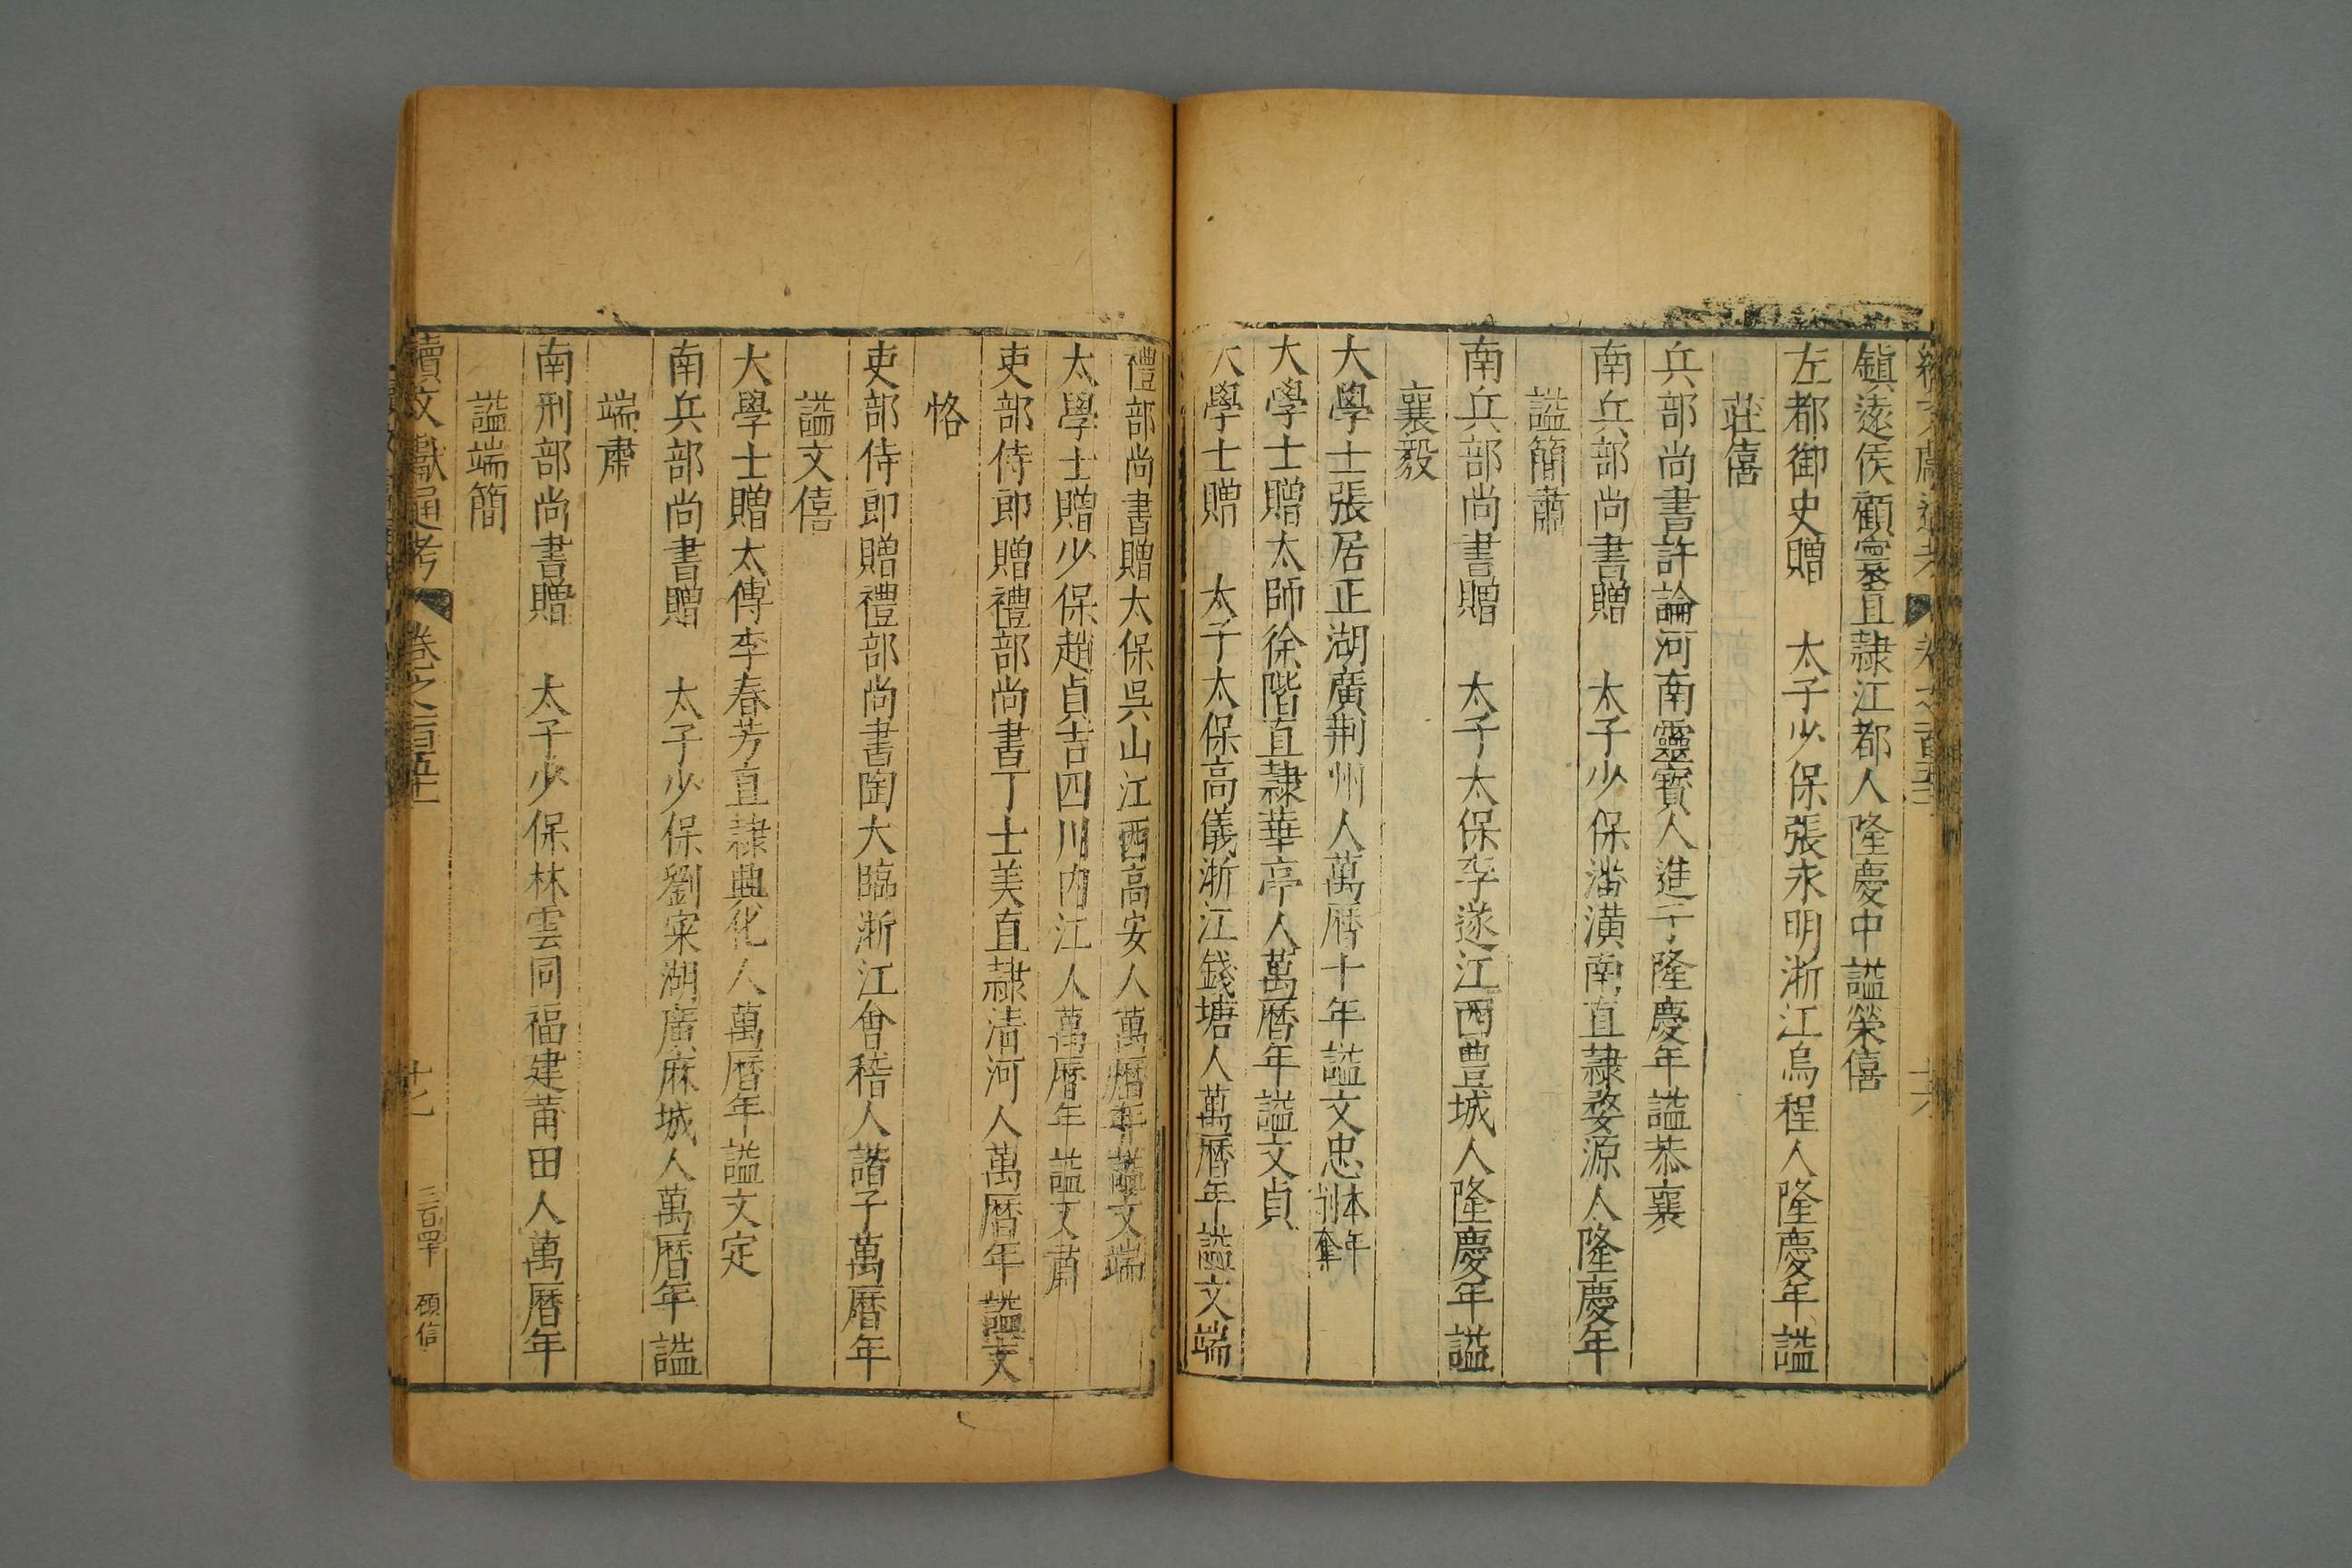 續文獻通考 卷之一百五十二 十六
鎮遠侯顧寰直隸江都人隆慶中謚榮僖
左都御史贈 太子少保張永明浙江烏程人隆慶年謚
莊僖
兵部尚書許論河南靈寳人進子隆慶年謚恭襄
南兵部尚書贈 太子少保潘潢南直隸婺源人隆慶年
謚簡肅
南兵部尚書贈 太子太保李遂江西豊城人隆慶年謚
襄毅
大學士張居正湖廣荆州人萬曆十年謚文忠本年削奪
大學士贈太師徐階直隸華亭人萬曆年謚文貞
大學士贈 太子太保高儀浙江錢塘人萬曆年謚文端
禮部尚書贈太保吳山江西高安人萬曆年謚文端
太學士贈少保趙貞吉四川内江人萬曆年謚文肅
吏部侍郎贈禮部尚書丁士美直隸淸河人萬曆年謚文
恪
吏部侍郎贈禮部尚書陶大臨浙江會稽人諧子萬曆年
謚文僖
大學士贈太傅李春芳直隸興化人萬曆年謚文定
南兵部尚書贈 太子少保劉寀湖廣麻城人萬曆年謚
端肅
南刑部尚書贈 太子少保林雲同福建莆田人萬曆年
謚端簡
續文獻通考 卷之一百五十二 十七 三百四十 顧信